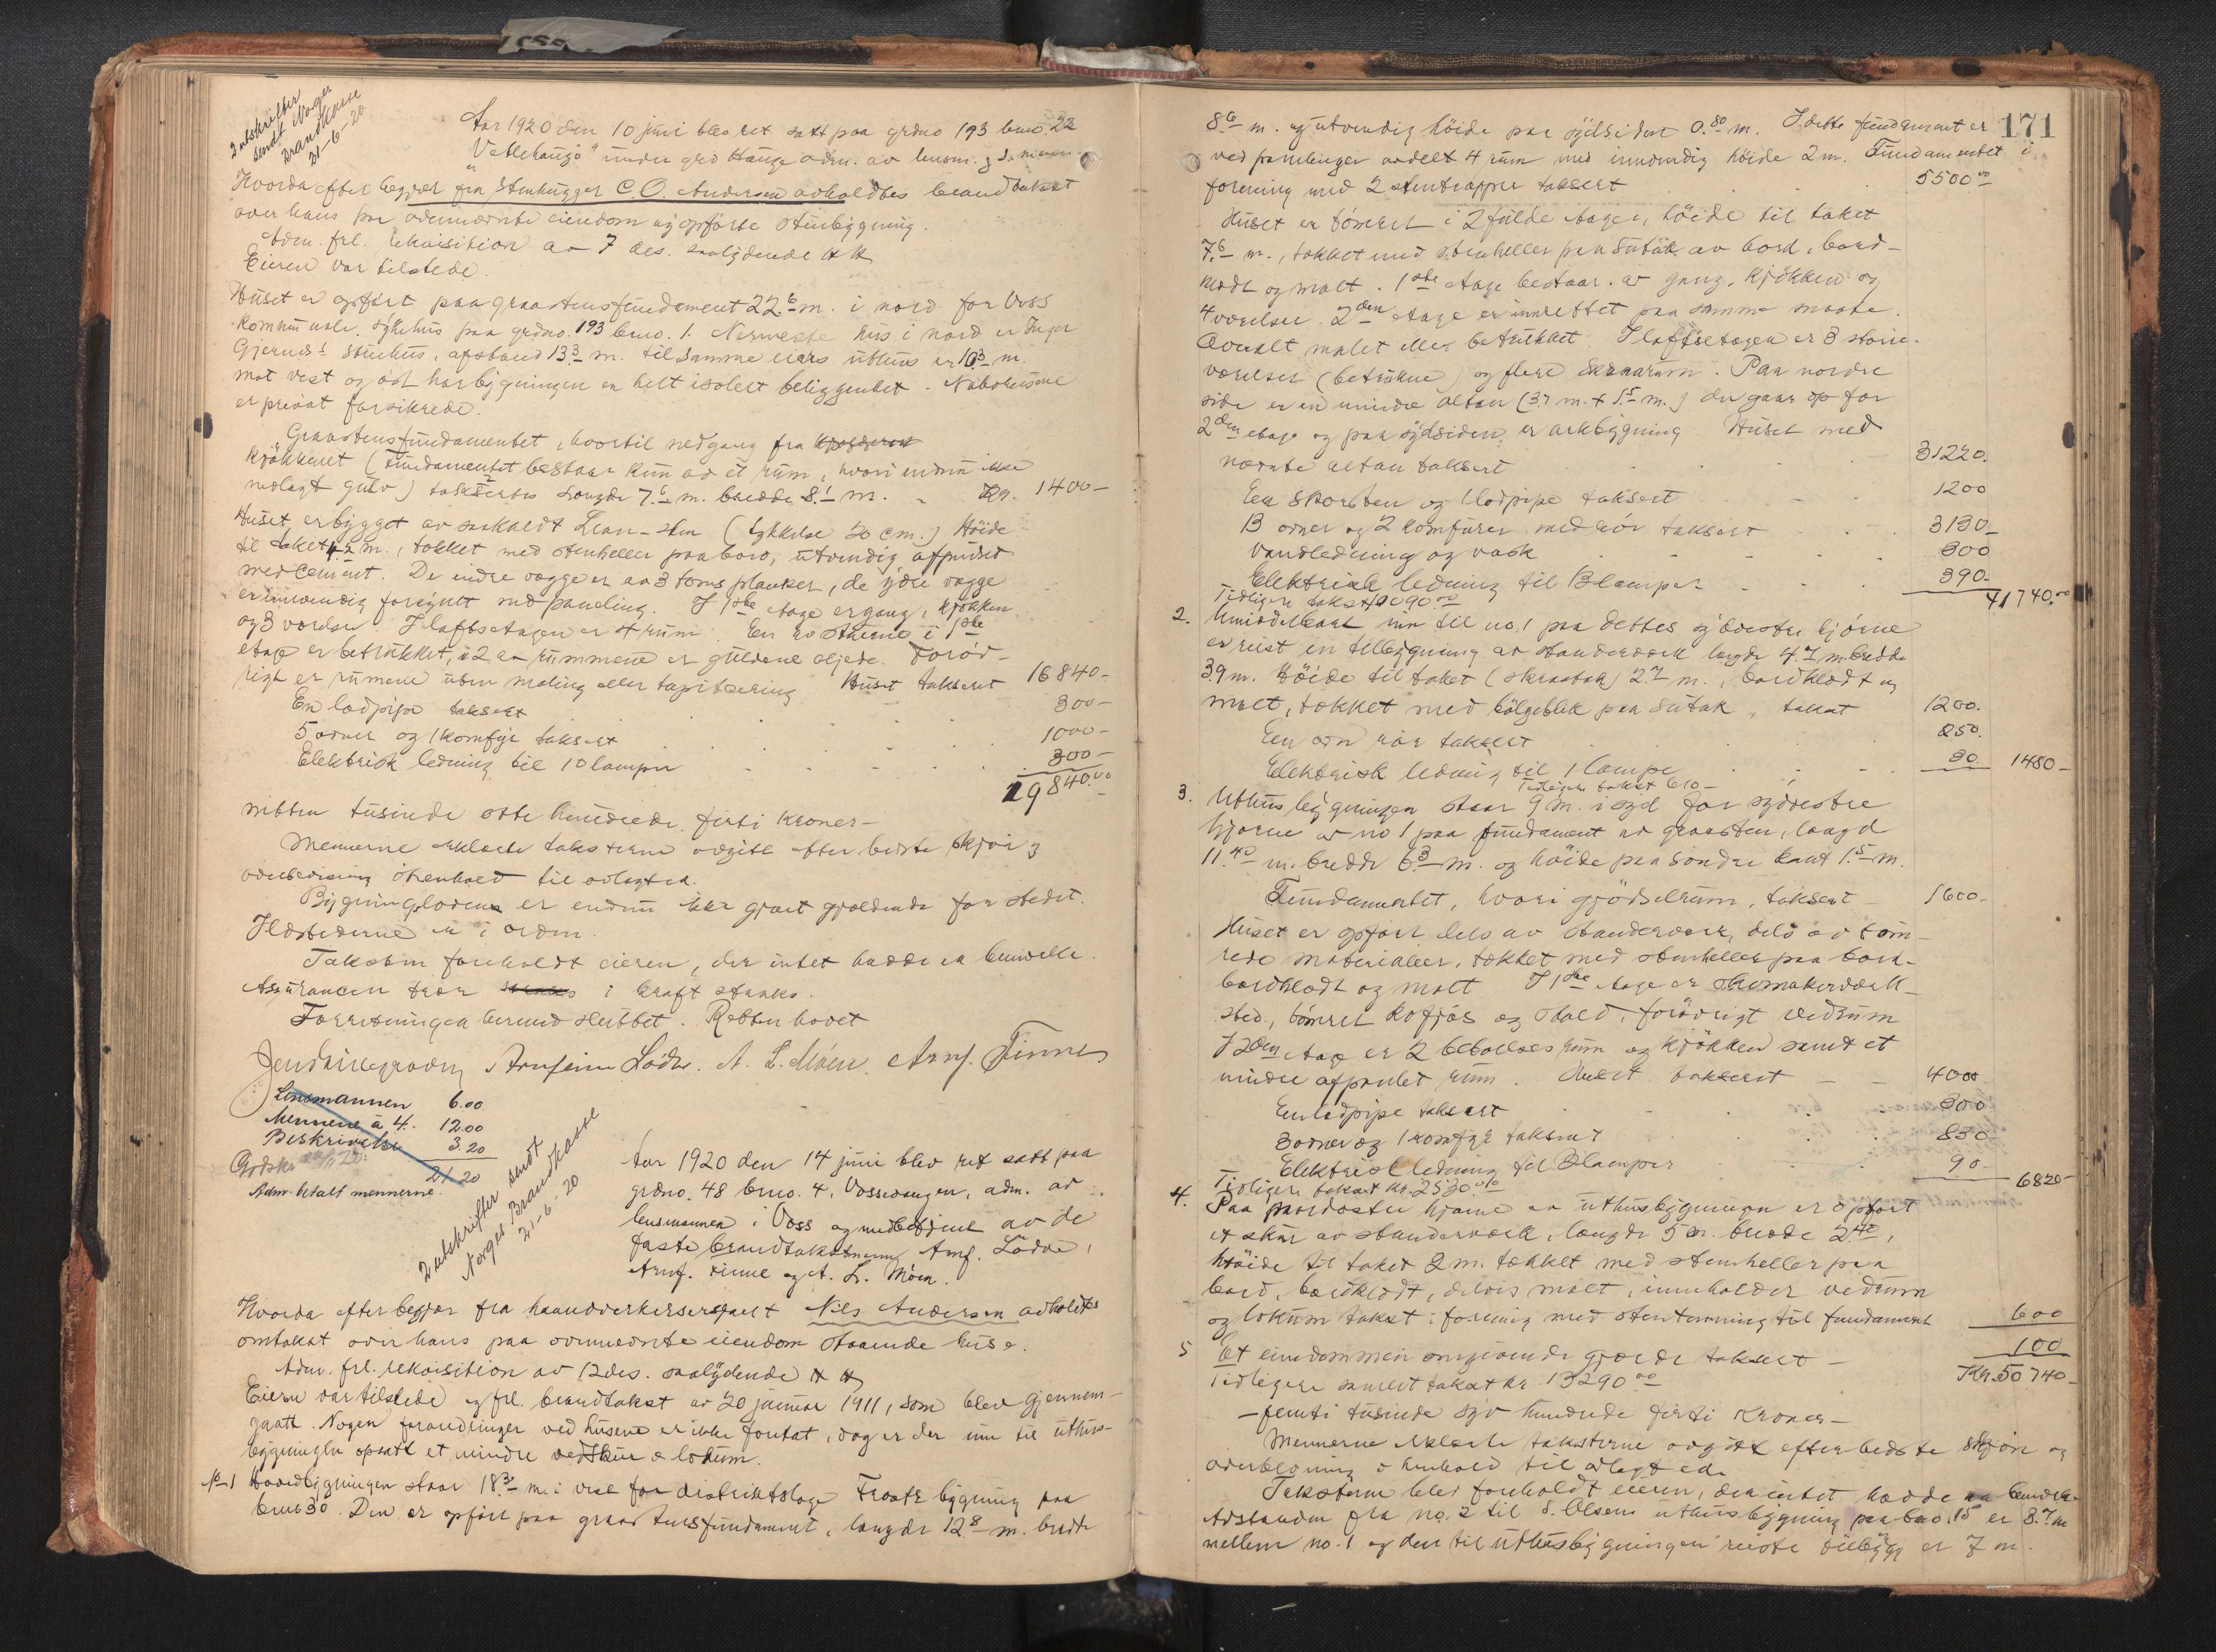 2 utskrifter
sendt Norges
Brandkasse
21-6-20
Aar 1920 den 10 juni blev ret satt paa grdno 193 bno. 22
"Vetlehaugo" under grd Hauge adm. av lensm. og 3 mænn
Hvorda efter begjær fra Stenhugger C. O. Andersen avholdtes brandtakst
over hans paa ovennævnte eiendom ny opförte stenbygning.
Adm. frl. rekvisition av 7 des. saalydende
Eieren var tilstede.
Huset er opfört paa graastensfundament 22.6 m. i nord for Voss
kommunale sykehus paa grdno. 193 bno. 1. Nærmeste hus i nord er Inger
Gjernes's stuehus, afstand 13.3 m. til samme eiers uthus er 10.3 m.
Mot vest og öst har bygningen en helt isolert beliggenhet. Nabohusene
er privat forsikrede.
Graastensfundamentet, hvortil nedgang fra
kjökkenet (Fundamentet bestaar kun av et rum, hvori endnu ikke
nedlagt gulv) takstertes længde 7.6 m. bredde 8.1 m. - Kr. 1400-
Huset er bygget av saakaldt Lean-sten (tykkelse 20 cm.) Höide
til taket m., tækket med stenheller paa bord, utvendig afpudset
med Cement. De indre vægge er av 3 toms planker, de ydre vægge
er innvendig forsynt med paneling. I 1ste etage er gang, kjökken
og 3 værelser. I loftsetagen er 4 rum. En av stuerne i 1ste
etage er betrukket, i 2 av rummene er gulvene oljede. Foröv-
rigt er rumene uten maling eller tapitsering Huset taksert 16840-
En ladpipe taksert 300-
5 ovner og 1 komfyr taksert 1000-
Elektrisk ledning til 10 lamper 300-
19840.00
nitten tusinde otte hundrede firti kroner-
Mennerne erklærte taksterne avgitt efter bedste skjön og
overbevisning i henhold til avlagt ed.
Bygningsloven er endnu ikke gjort gjældende for stedet.
Ildstederne er i orden.
Taksten foreholdt eieren, der intet hadde at bemerke.
Assurancen trær i kraft straks.
Forretningen hermed sluttet. Retten hævet
Arnfinn Lödve. A. L. Möen. Arnf. Finne
Lensmannen 6.00
Mennene à 4. 12.00
Beskrivelse 3.20
21.20
Adm. betalt mennerne.
2 utskrifter sendt
Norges Brandkasse
21-6-20
Aar 1920 den 14 juni blev ret satt paa
grdno. 48 bno. 4, Vossevangen, adm. av
lensmannen i Voss og medbetjent av de
faste brandtakstmenn Arnf. Lödve,
Arnf. Finne og A. L. Möen.
Hvorda efter begjær fra haandverkersersjant Nils Andersen avholdtes
omtakst over hans paa ovennevnte eiendom staaende huse.
Adm. frl. rekvisition av 12 des. saalydende
Eieren var tilstede og frl. brandtakst av 20 januar 1911, som blev gjennem-
gaatt. Nogen forandringer ved husene er ikke foretat, dog er der inn til uthus-
bygningen opsatt et mindre vedskur & lokum.
No 1 Hovedbygningen staar 18.3 m. i vest for distriktslæge bygning paa
bno 30. Den er opfört paa graastensfundament, længde 12.8 m. bredde
171
8.6 m. og utvendig höide paa sydsiden 0.80 m. I dette fundament er
ved panelinger avdelt 4 rum med innvendig höide 2 m. Fundamentet i
forening med 2 stentrapper taksert 5500.00
Huset er tömret i 2 fulde etager, höide til taket
7.6 m., tækket med stenheller paa sutak av bord, bord-
klædt og malt. 1ste etage bestaar av gang, kjökken og
4 værelser. 2den etage er innrettet paa samme maate.
Overalt malet eller betrukket. I loftsetagen er 3 större
værelser (betrukne) og flere. Paa nordre
side er en mindre altan (3.7 m. + 1.5 m.) der gaar op for
2den etage og paa sydsiden er arkbygning Huset med
nævnte altan taksert 31220.
En skorsten og 1 ladpipe taksert 1200
13 ovner og 2 komfurer med rör taksert 3130-
Vandledning og vask 300
Elektrisk ledning til 13 lamper 390-
Tidligere takst 10090.00 41740.00
2. Umiddelbart inn til no. 1 paa dettes sydvestre hjörne
er reist en tilbygning av standerverk længde 4.7 m. bredde
3.9 m. Höide til taket (skraatak) 2.7 m., bordklædt og
malt, tækket med bölgeblik paa sutak, takst 1200.
En ovn rör taksert 250.
Elektrisk ledning til 1 lampe 30. 1480-
Tidligere takst 610-
3. Uthusbygningen staar 9 m. i syd for sydvestre
hjörne av no 1 paa fundament av graasten, længd
11.40 m. bredde 6.3 m. og höide paa söndre kant 1.5 m.
Fundamentet, hvori gjödselrum, taksert 1600-
Huset er opfört dels av standerverk, dels av töm-
rede materialier, tækket med stenheller paa bord-
bordklædt og malt I 1ste etage er skomakerværk-
sted, tömret kofjös og stald, forövrigt vedrum
I 2den etage er 2 beboelsesrum og kjökken samt et
mindre afpanlet rum. Huset taksert 4000
En ladpipe taksert 300
3 ovner og 1 komfyr taksert 830-
Elektrisk ledning til 3 lamper 90-
Tidligere takst kr. 2530.00 6820-
4. Paa nordöstre hjörne av uthusbygningen er opfört
et skur av standerverk, længde 5 m. bredde 2.40,
höide til taket 2 m. tækket med stenheller paa
bord, bordklædt, delvis malt, inneholder vedrum
og lokum takst i forening med stentömning til fundament 600
5 Et eiendommen omgivende gjærde taksert - 100
Tidligere samlet takst kr. 13290.00 Kr. 50740-
-femti tusinde syv hundrede firti kroner-
Mennerne erklærte taksterne avgitt efter bedste skjön og
overbevisning i henhold til avlagt ed.
Taksterne blev foreholdt eieren, der intet hadde at bemerke.
Avstanden fra no. 2 til S. Olsens uthusbygning paa bno. 15 er 8.7 m
mellem no. 1 og den til uthusbygningen reiste tilbygg er 7 m.